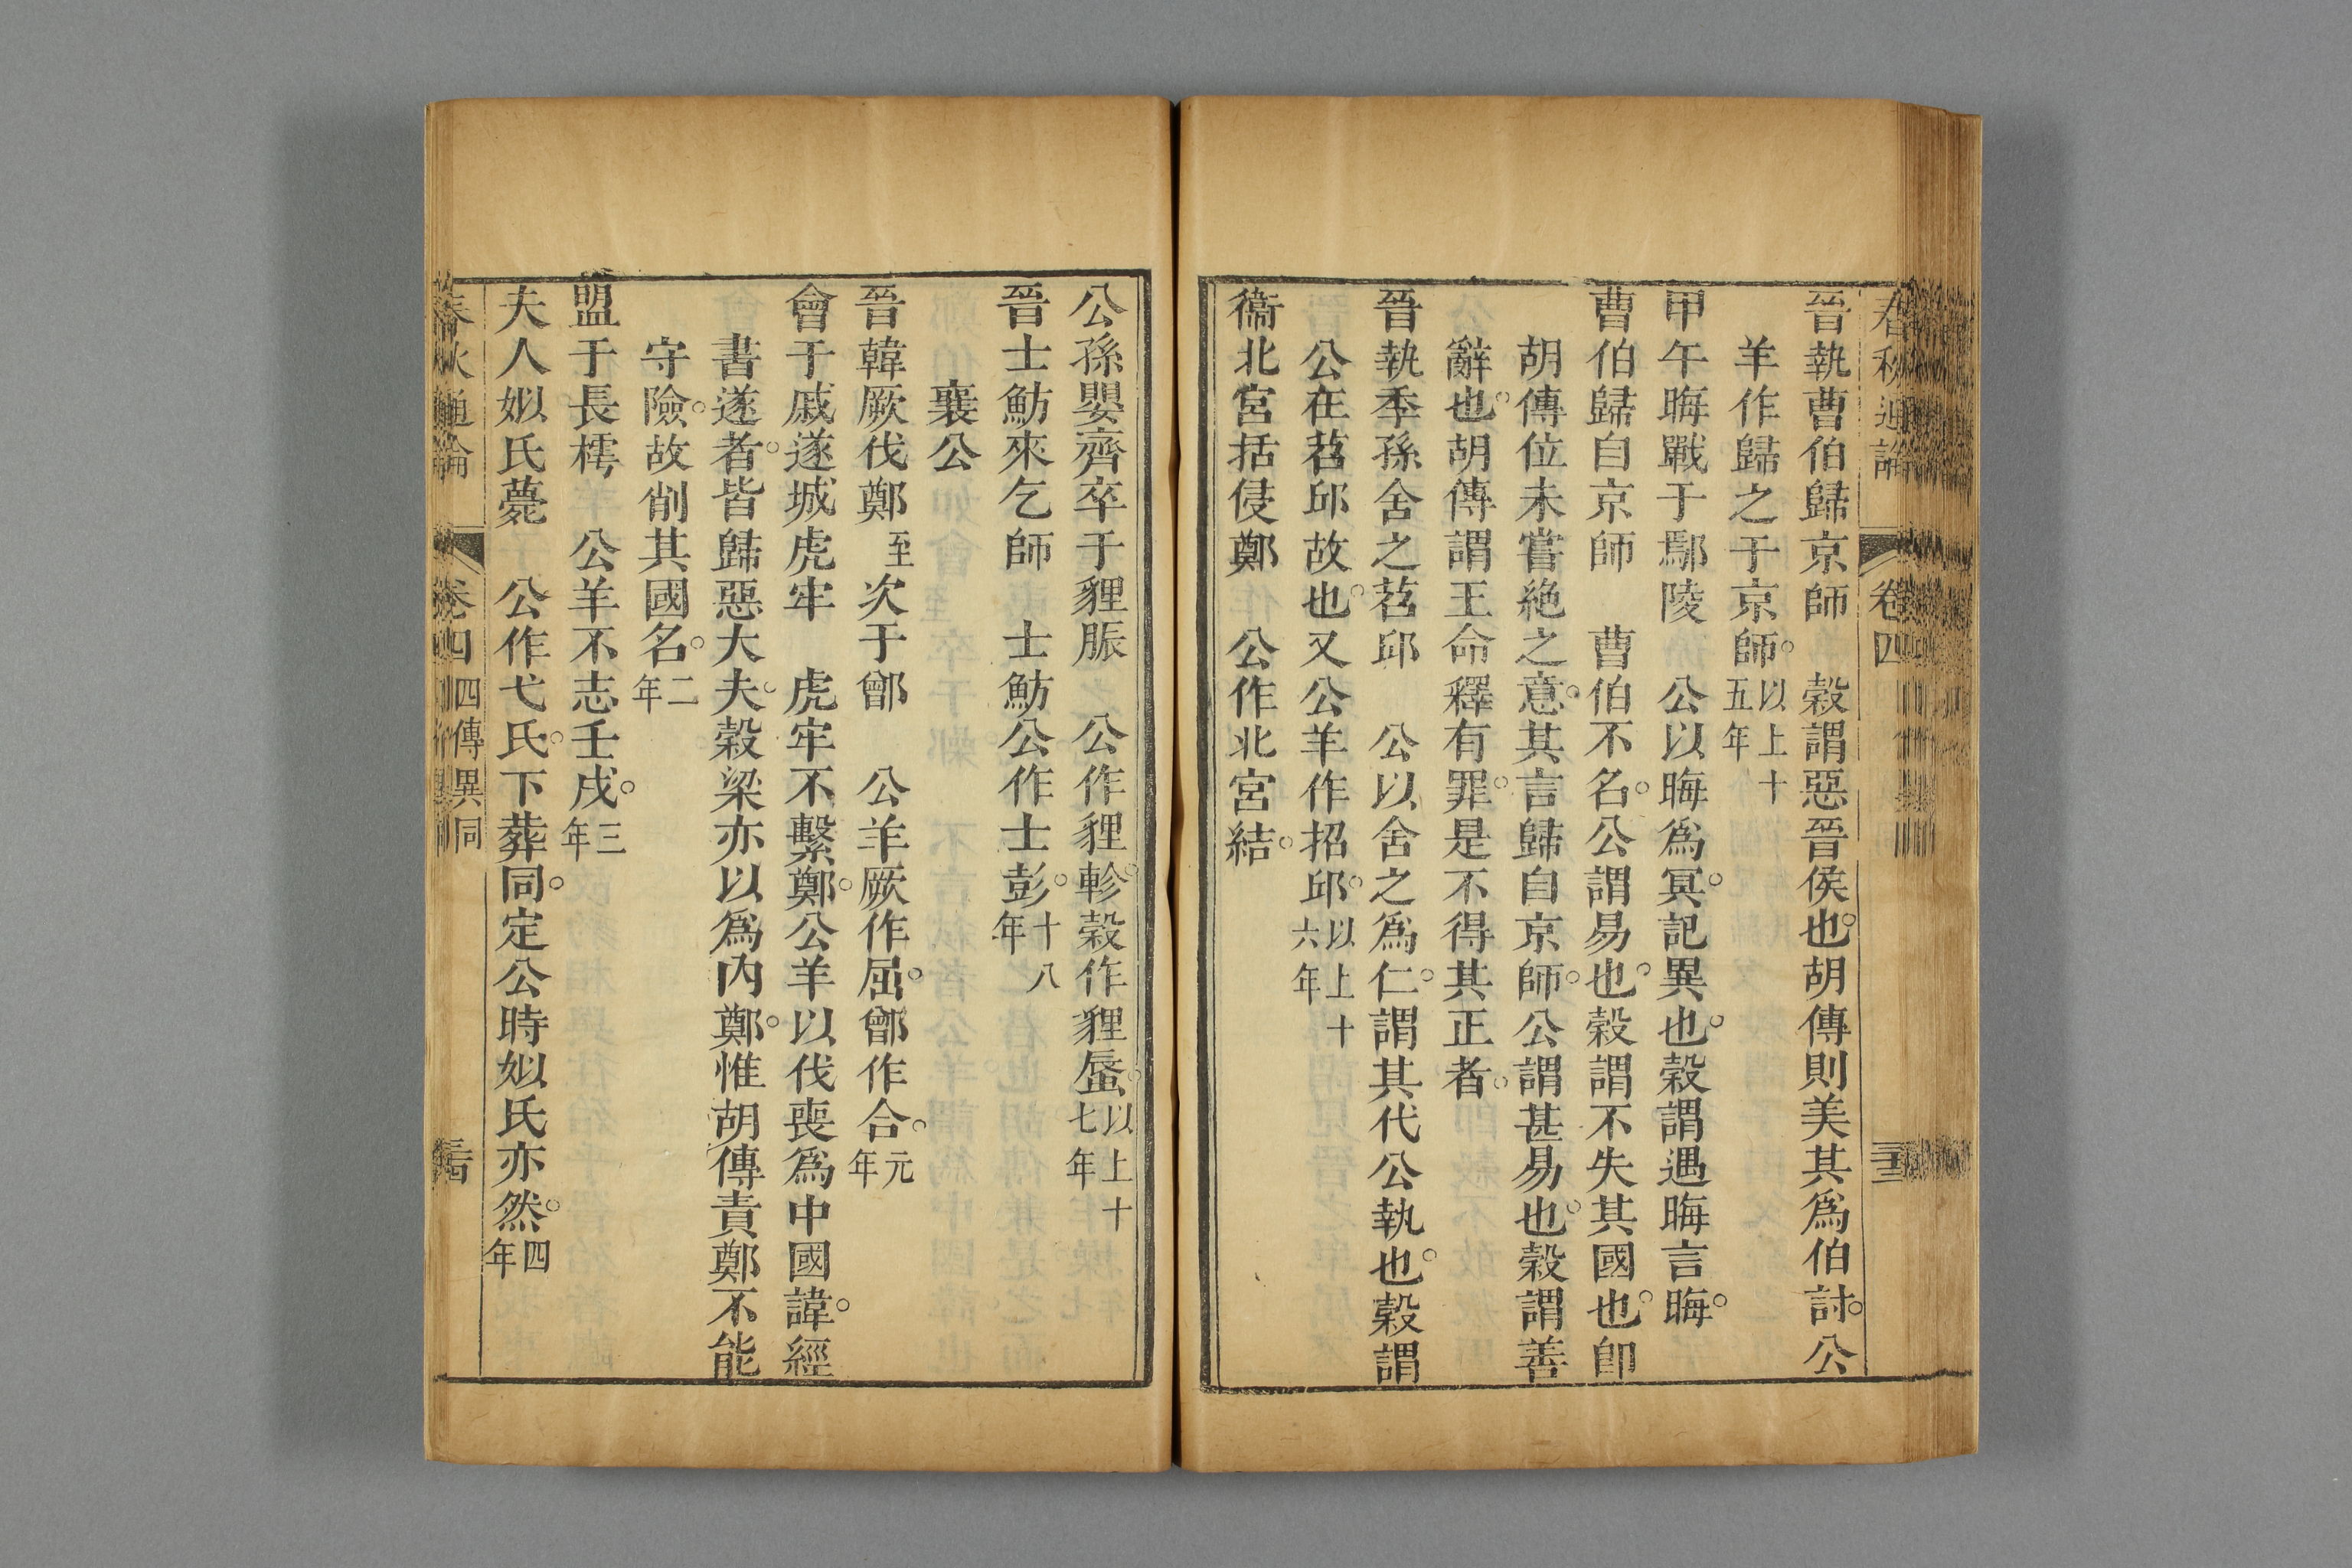 春秋通論 卷四
晉執曹伯歸京師 穀謂惡晉侯也胡傳則美其爲伯討公
羊作歸之于京師以上十五年
甲午晦戰于鄢陵 公以晦爲冥記異也穀謂遇晦言晦
曹伯歸自京師 曹伯不名公謂易也穀謂不失其國也卽
胡傳位未嘗絶之意其言歸自京師公謂甚易也穀謂善
辭也胡傳謂王命釋有罪是不得其正者
晉執季孫舍之苕邱 公以舍之爲仁謂其代公執也穀謂
公在苕邱故也又公羊作招邱以上十六年
衞北宮括侵鄭 公作北宮結
公孫嬰齊卒于貍脤 公作貍軫穀作貍蜃以上十七年
晉士魴來乞師 士魴公作士彭十八年
襄公
晉韓厥伐鄭至次于鄫 公羊厥作屈鄫作合元年
會于戚遂城虎牢 虎牢不繫鄭公羊以伐喪爲中國諱經
書遂者皆歸惡大夫穀梁亦以爲內鄭惟胡傳責鄭不能
守險故削其國名二年
盟于長樗 公羊不志壬戌三年
夫人姒氏薨 公作弋氏下葬同定公時姒氏亦然四年
春秋通論 卷四 四傳異同